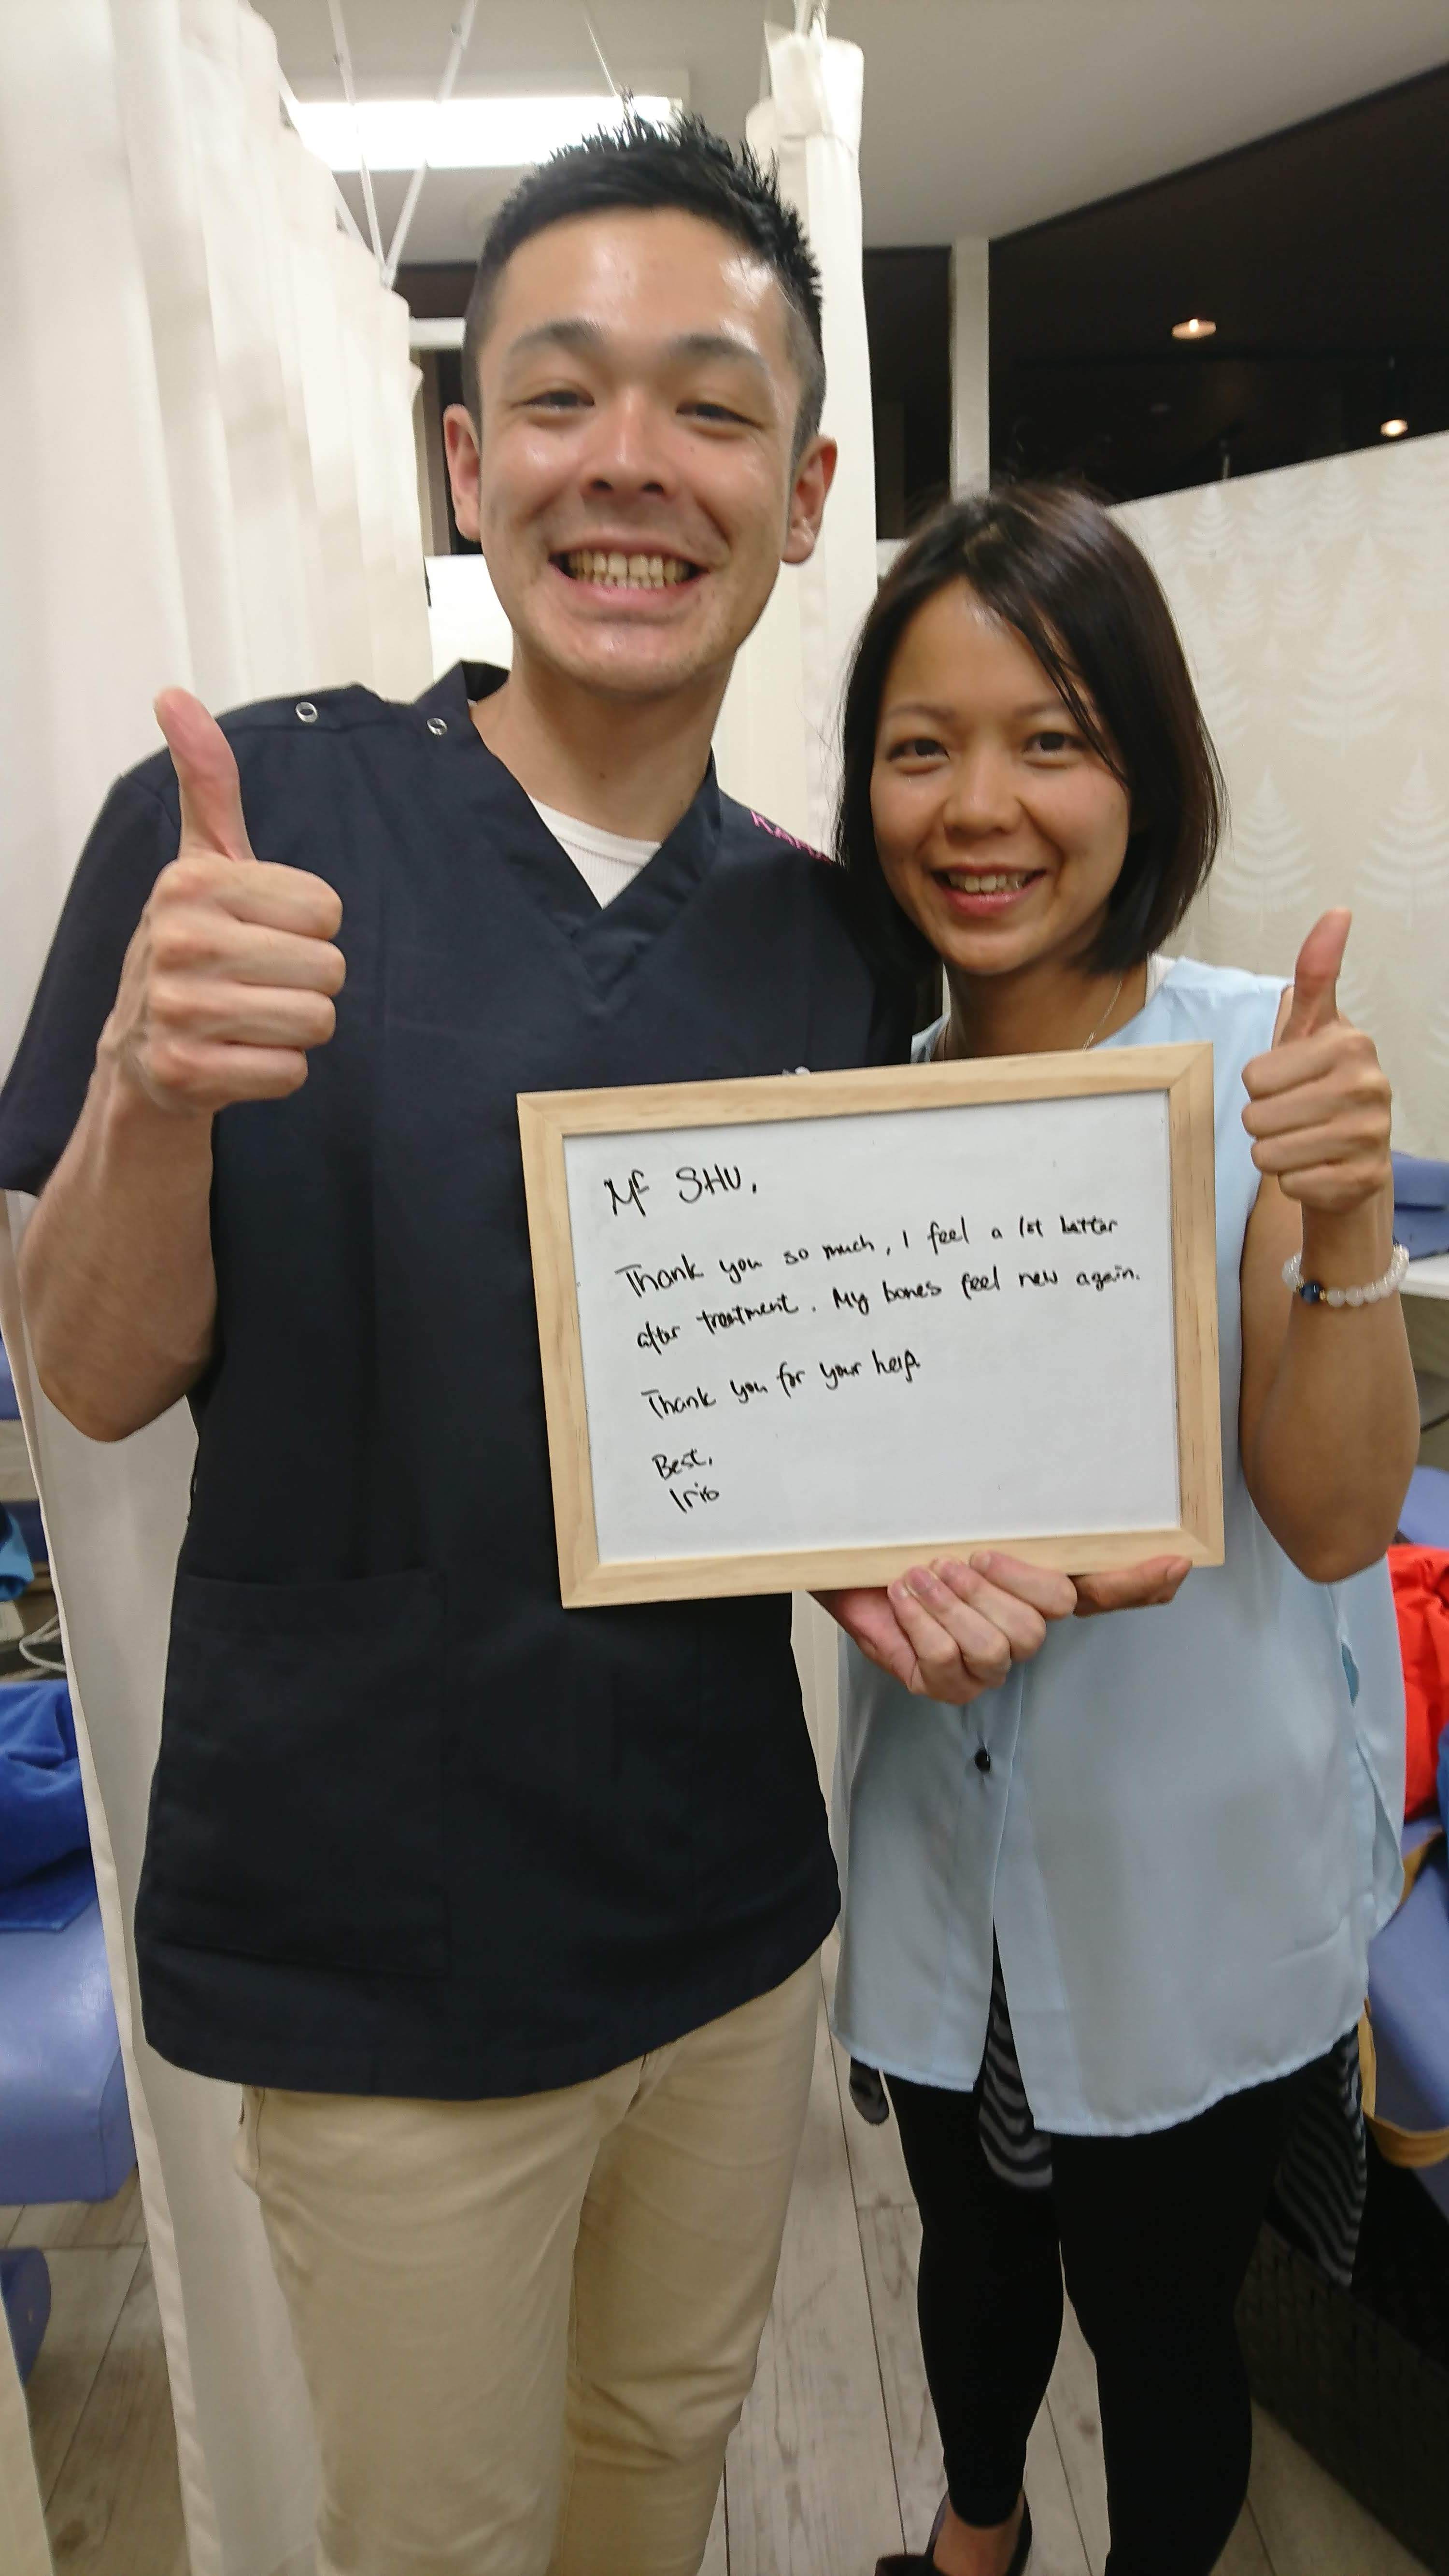 Mr SHU,
Thank you so much, I feel a lot better
after treatment. My bones feel new again.
Thank you for your help.
Best,
Iris